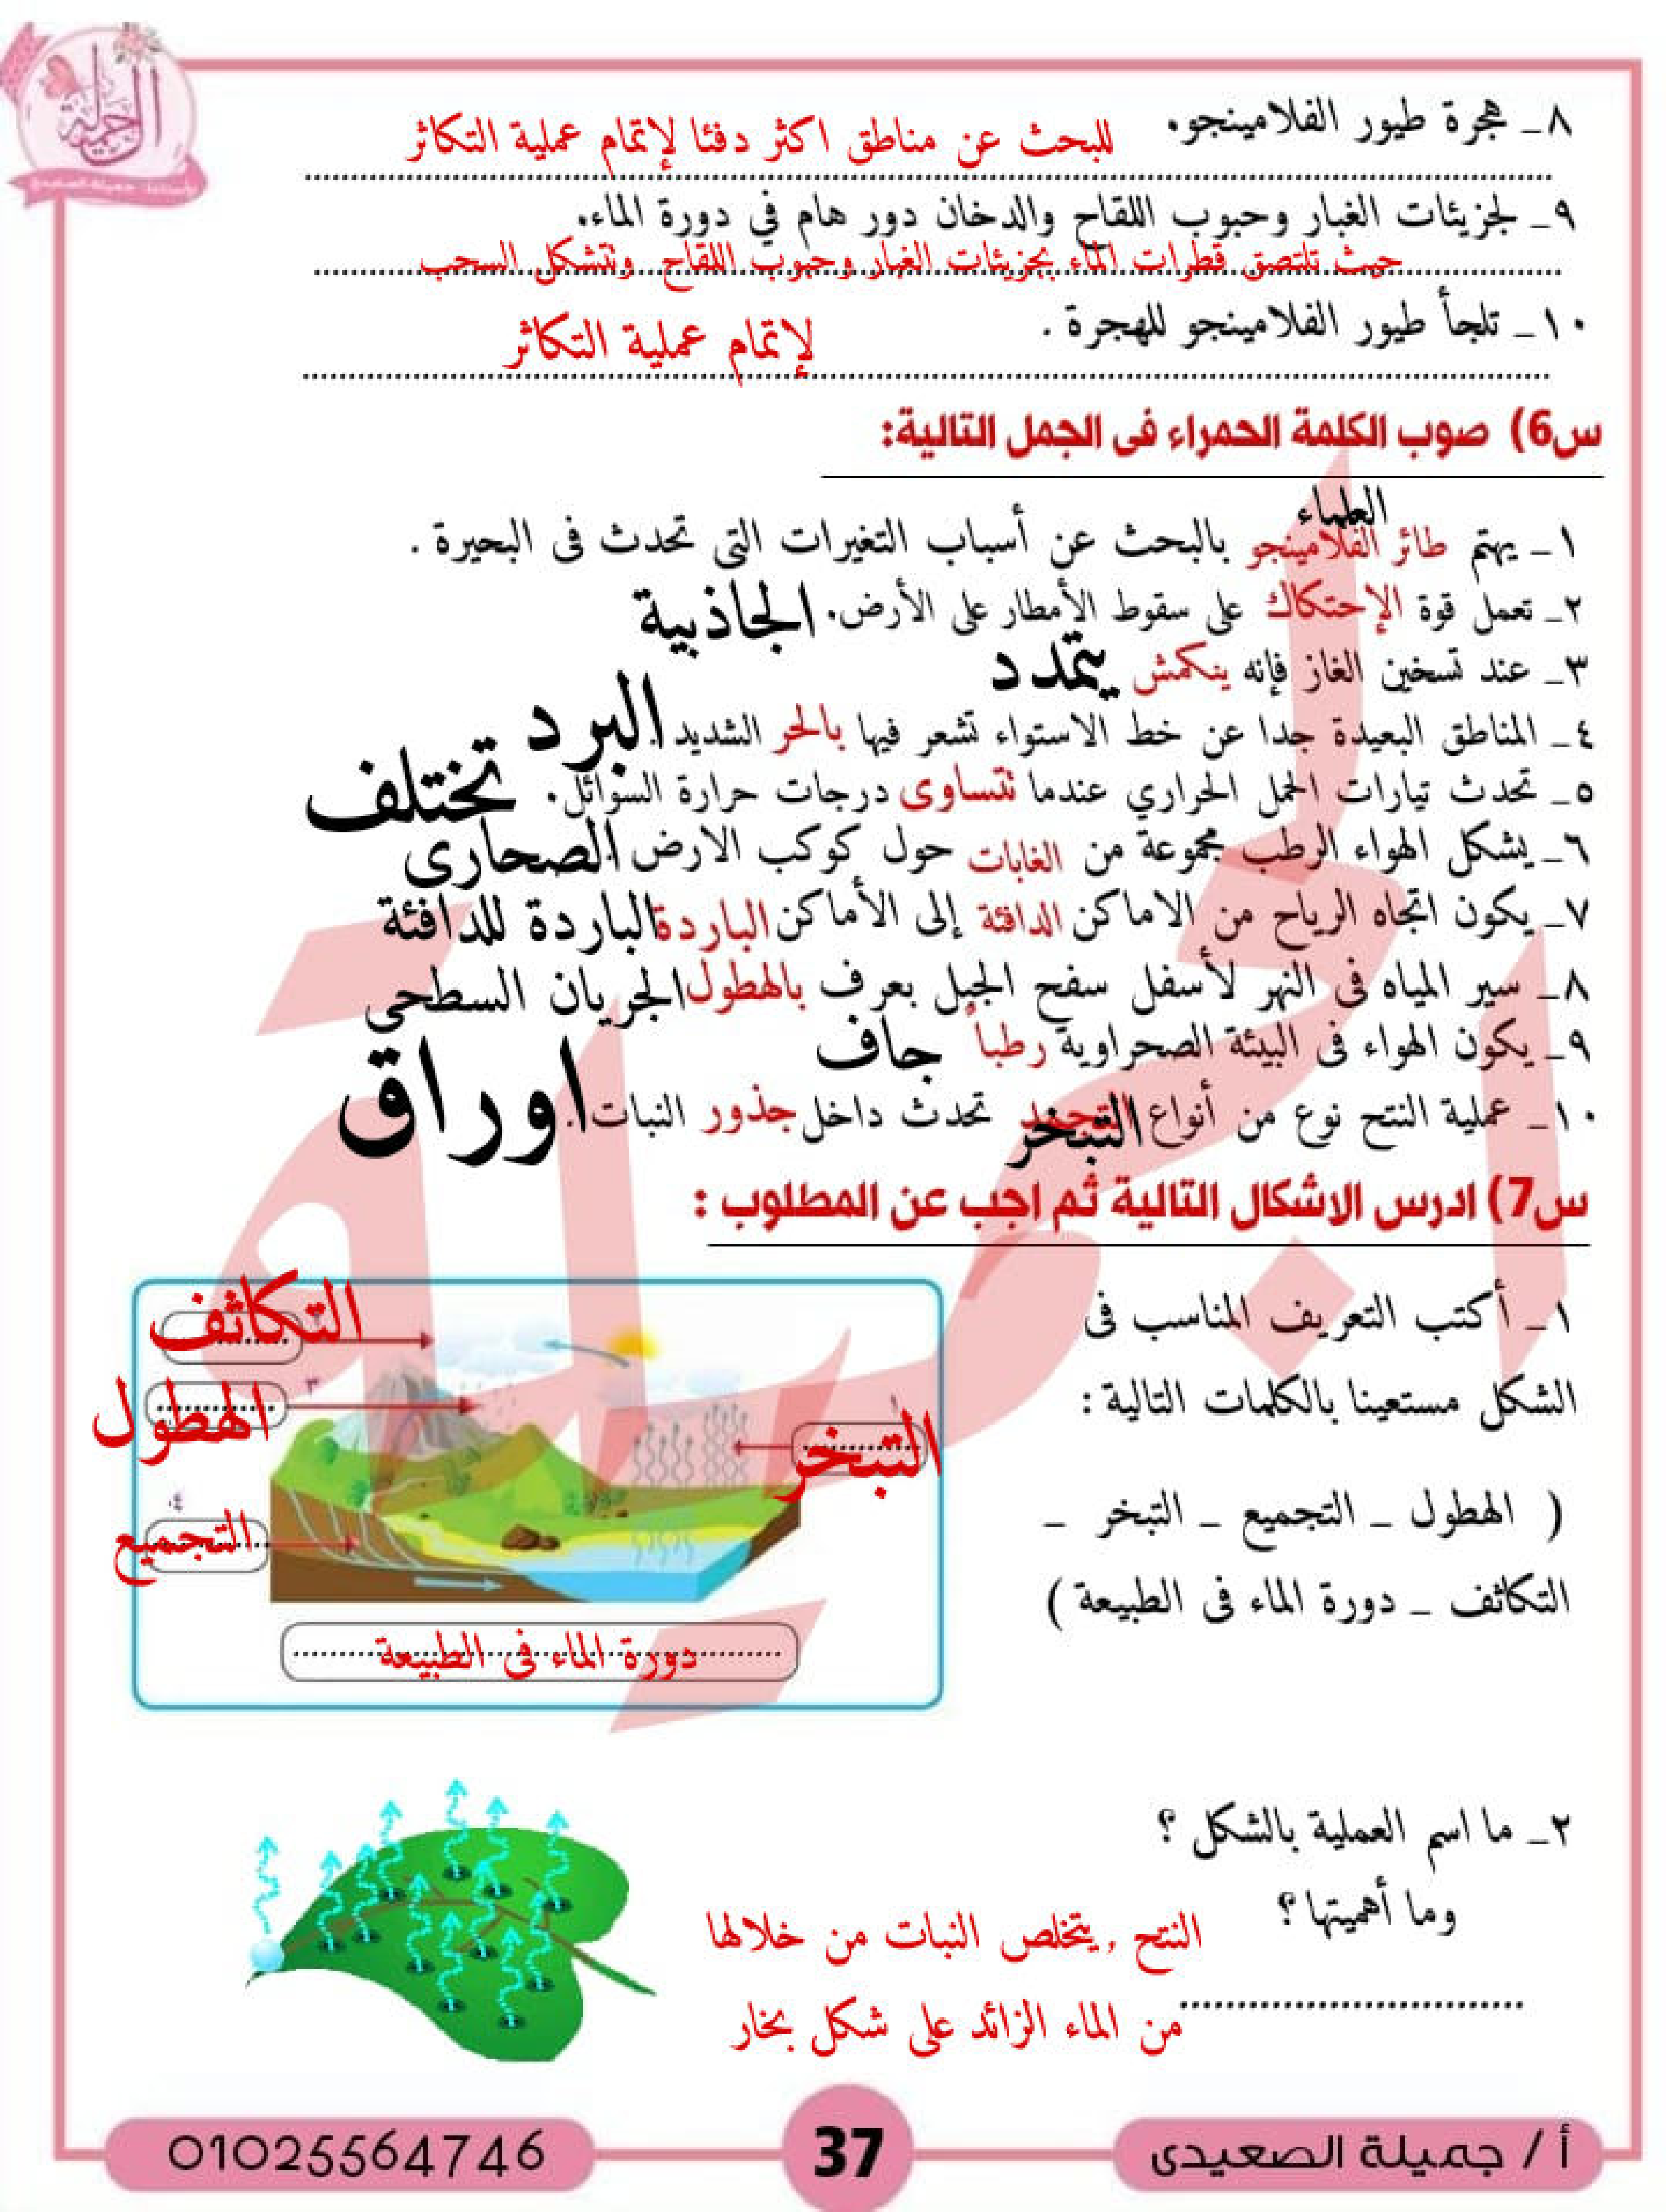 الجميلة
٨_ هجرة طيور الفلامينجو. للبحث عن مناطق اكثر دفئا لإتمام عملية التكاثر
٩_ لجزيئات الغبار وحبوب اللقاح والدخان دور هام في دورة الماء.
حيث تلتصق قطرات الماء بجزيئات الغبار وحبوب اللقاح وتتشكل السحب
١٠_ تلجأ طيور الفلامينجو للهجرة . لإتمام عملية التكاثر
س6) صوب الكلمة الحمراء فى الجمل التالية:
العلماء
١_ يهتم طائر الفلامينجو بالبحث عن أسباب التغيرات التى تحدث فى البحيرة .
٢_ تعمل قوة الإحتكاك على سقوط الأمطار على الأرض. الجاذبية
٣_ عند تسخين الغاز فإنه ينكمش يتمدد
٤_ المناطق البعيدة جدا عن خط الاستواء تشعر فيها بالحر الشديد . البرد
٥_ تحدث تيارات الحمل الحراري عندما تتساوى درجات حرارة السوائل. تختلف
٦_ يشكل الهواء الرطب مجموعة من الغابات حول كوكب الارض . الصحارى
٧_ يكون اتجاه الرياح من الاماكن الدافئة إلى الأماكن الباردة الباردة للدافئة
٨_ سير المياه فى النهر لأسفل سفح الجبل بعرف بالهطول الجريان السطحى
٩_ يكون الهواء فى البيئة الصحراوية رطباً جاف
١٠_ عملية النتح نوع من أنواع التجمد التبخر تحدث داخل جذور النبات . اوراق
س7) ادرس الاشكال التالية ثم اجب عن المطلوب :
١_ أكتب التعريف المناسب فى
الشكل مستعينا بالكلمات التالية :
( الهطول _ التجميع _ التبخر _
التكاثف _ دورة الماء فى الطبيعة )
التكاثف
٣ الهطول
١ التبخر
٤ التجميع
دورة الماء فى الطبيعة
٢_ ما اسم العملية بالشكل ؟
وما أهميتها ؟
النتح , يتخلص النبات من خلالها
من الماء الزائد على شكل بخار
أ / جميلة الصعيدى
37
01025564746